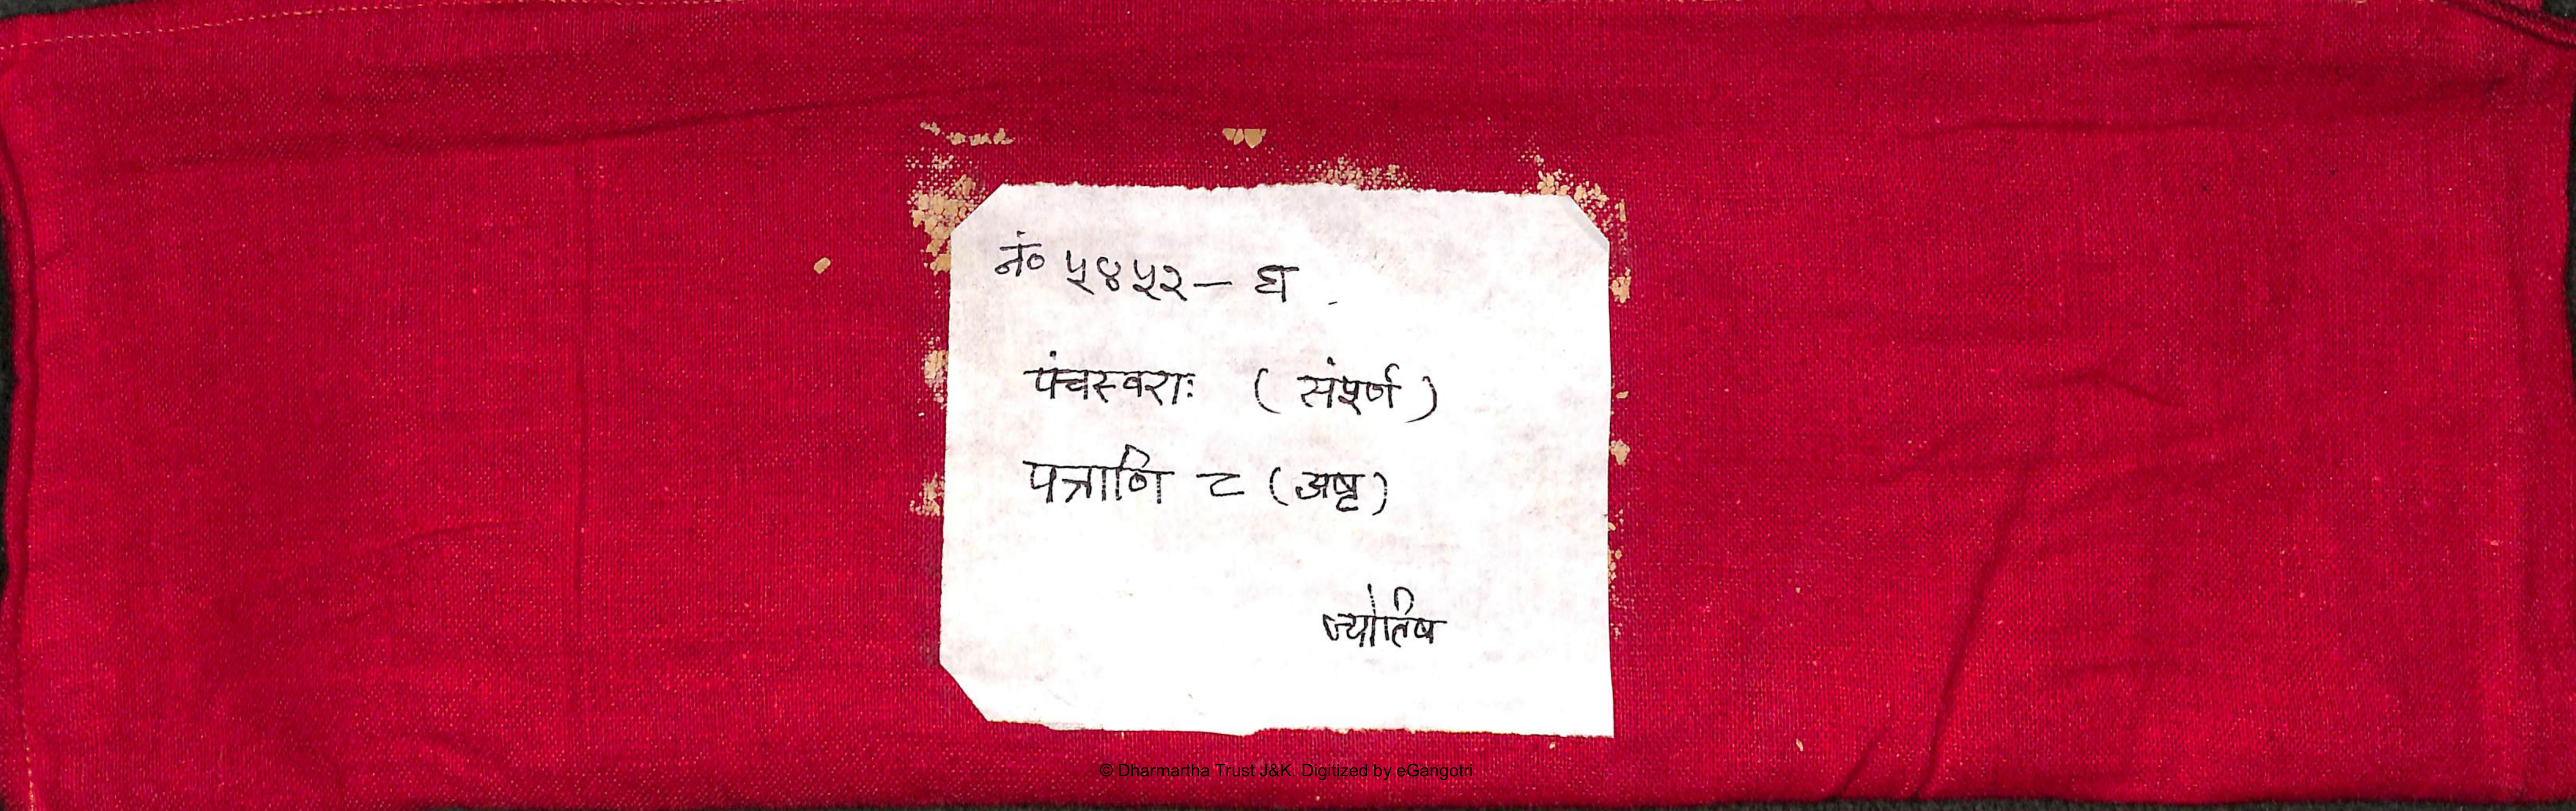 नं० ५४५२ – घ
पंचस्वराः ( संपूर्ण )
पत्राणि ८ (अष्ट)
ज्योतिष
© Dharmartha Trust J&K. Digitized by eGangotri